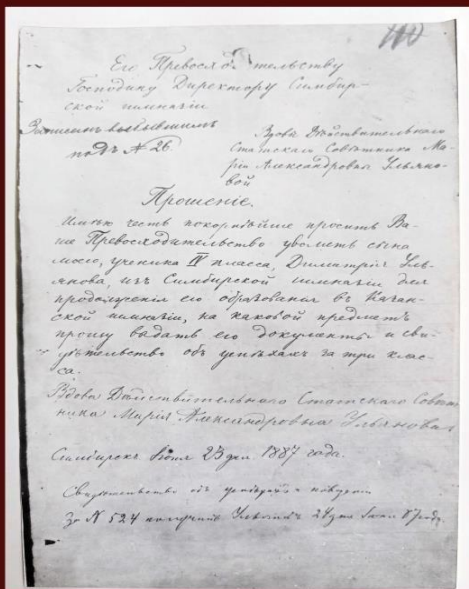 110
Его Превосходительству
Господину Директору Симбир-
ской гимназіи
Записанъ выбывшимъ
подъ № 26
Вдова Дѣйствительнаго
Статскаго Совѣтника Ма-
рія Александровна Ульяно-
вой
Прошеніе.
Имѣю честь покорнѣйше просить Ва-
ше Превосходительство уволить сына
моего, ученика IV класса, Димитрія Уль-
янова, изъ Симбирской гимназіи для
продолженія его образованія въ Казан-
ской гимназіи, на каковой предметъ
прошу выдать его документы и сви-
дѣтельство объ успѣхахъ за три клас-
са.
Вдова Дѣйствительнаго Статскаго Совѣт-
ника Марія Александровна Ульянова
Симбирскъ Іюня 23 дня 1887 года.
Свидетельство об успѣхахъ и
За № 524 получилъ Ульяновъ 24 дня Іюня 87 года.